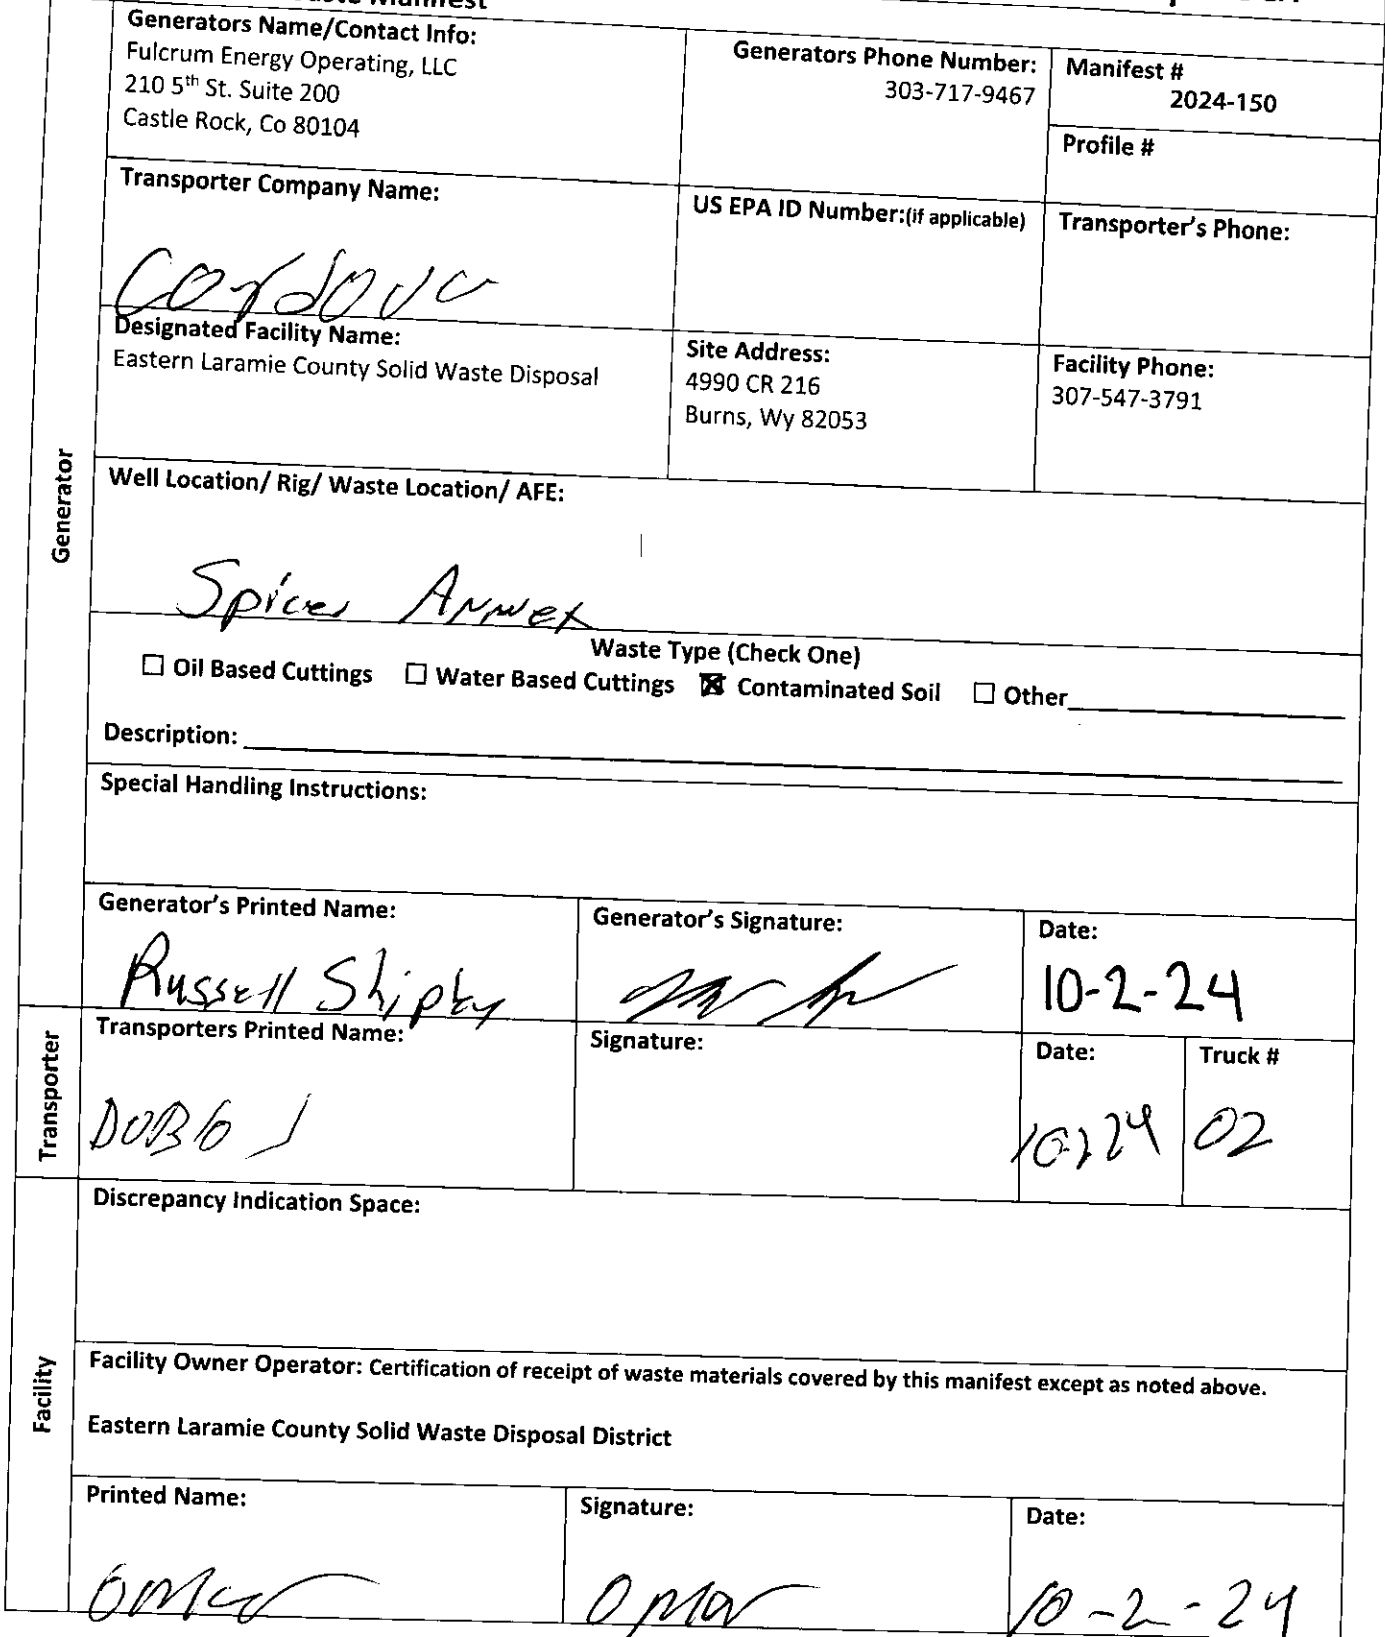 Manifest
Generators Name/Contact Info:
Fulcrum Energy Operating, LLC
210 5th St. Suite 200
Castle Rock, Co 80104
Generators Phone Number:
303-717-9467
Manifest #
2024-150
Profile #
Transporter Company Name:
Cordova
US EPA ID Number:(if applicable)
Transporter's Phone:
Designated Facility Name:
Eastern Laramie County Solid Waste Disposal
Site Address:
4990 CR 216
Burns, Wy 82053
Facility Phone:
307-547-3791
Generator
Well Location/ Rig/ Waste Location/ AFE:
Spicer Annex
Waste Type (Check One)
☐ Oil Based Cuttings ☐ Water Based Cuttings ☒ Contaminated Soil ☐ Other
Description:
Special Handling Instructions:
Generator's Printed Name:
Russell Shipley
Generator's Signature:
Date:
10-2-24
Transporter
Transporters Printed Name:
Signature:
Date:
Truck #
02
Facility
Discrepancy Indication Space:
Facility Owner Operator: Certification of receipt of waste materials covered by this manifest except as noted above.
Eastern Laramie County Solid Waste Disposal District
Printed Name:
Omar
Signature:
Omar
Date:
10-2-24